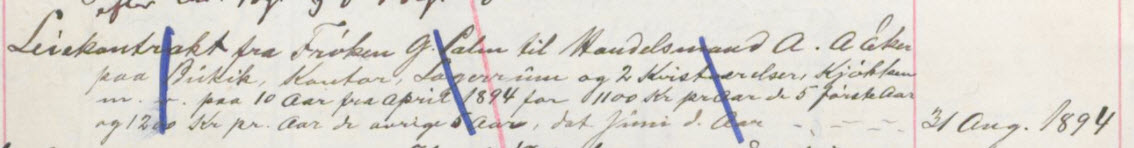 Leiekontrakt fra Frøken G. Lalin til Handelsmand A. A Eker
paa Butik, Kontor, Lagerrum og 2 Kvistværelser, Kjøkken
m. v. paa 10 Aar fra April 1894 for 1100 Kr pr Aar de 5 første Aar
og 1200 Kr pr. Aar de øvrige 5 Aar, dat Juni d. Aar - - - - 31 Aug. 1894